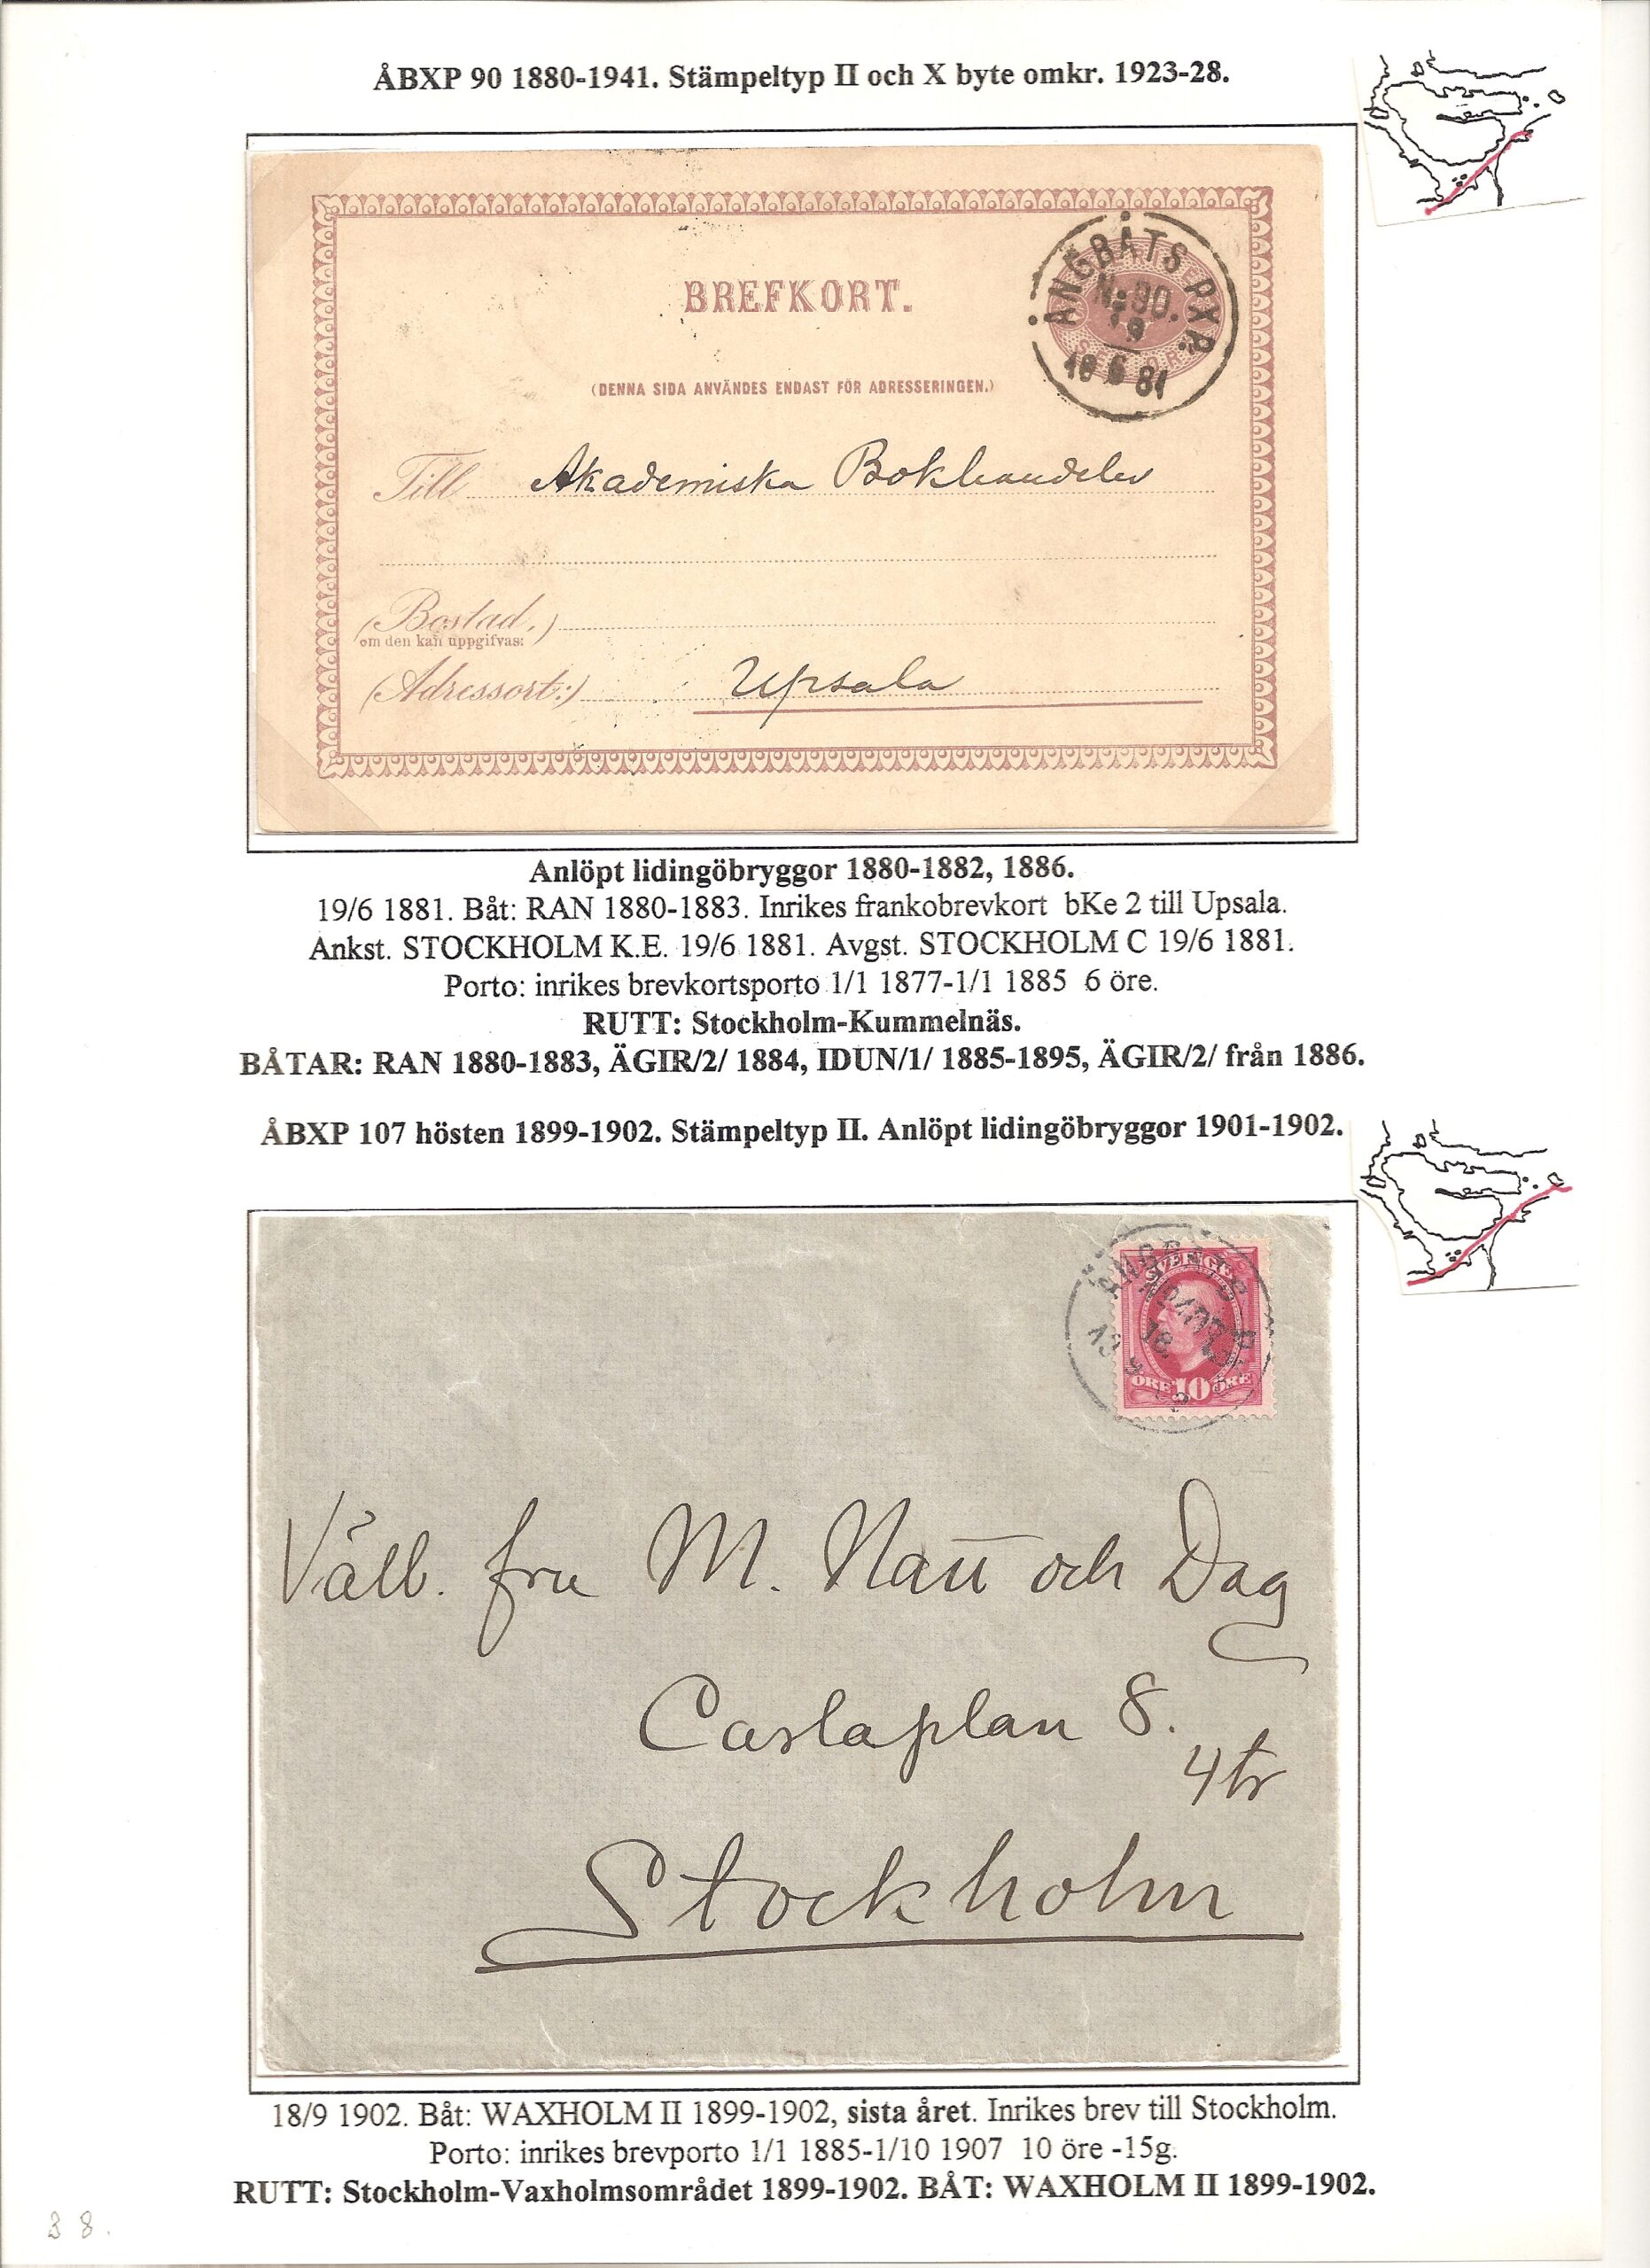 ÅBXP 90 1880-1941. Stämpeltyp II och X byte omkr. 1923-28.
BREFKORT.
ÅNGBÅTS PXP.
№ 90.
19
18 6 81
(DENNA SIDA ANVÄNDES ENDAST FÖR ADRESSERINGEN.)
Till Akademiska Bokhandeln
(Bostad,)
om den kan uppgifvas:
(Adressort:) Upsala
Anlöpt lidingöbryggor 1880-1882, 1886.
19/6 1881. Båt: RAN 1880-1883. Inrikes frankobrevkort bKe 2 till Upsala.
Ankst. STOCKHOLM K.E. 19/6 1881. Avgst. STOCKHOLM C 19/6 1881.
Porto: inrikes brevkortsporto 1/1 1877-1/1 1885 6 öre.
RUTT: Stockholm-Kummelnäs.
BÅTAR: RAN 1880-1883, ÄGIR/2/ 1884, IDUN/1/ 1885-1895, ÄGIR/2/ från 1886.
ÅBXP 107 hösten 1899-1902. Stämpeltyp II. Anlöpt lidingöbryggor 1901-1902.
SVERIGE
18
ÖRE 10 ÖRE
Välb. fru M. Natt och Dag
Carlaplan 8.
4 tr
Stockholm
18/9 1902. Båt: WAXHOLM II 1899-1902, sista året. Inrikes brev till Stockholm.
Porto: inrikes brevporto 1/1 1885-1/10 1907 10 öre -15g.
RUTT: Stockholm-Vaxholmsområdet 1899-1902. BÅT: WAXHOLM II 1899-1902.
38.